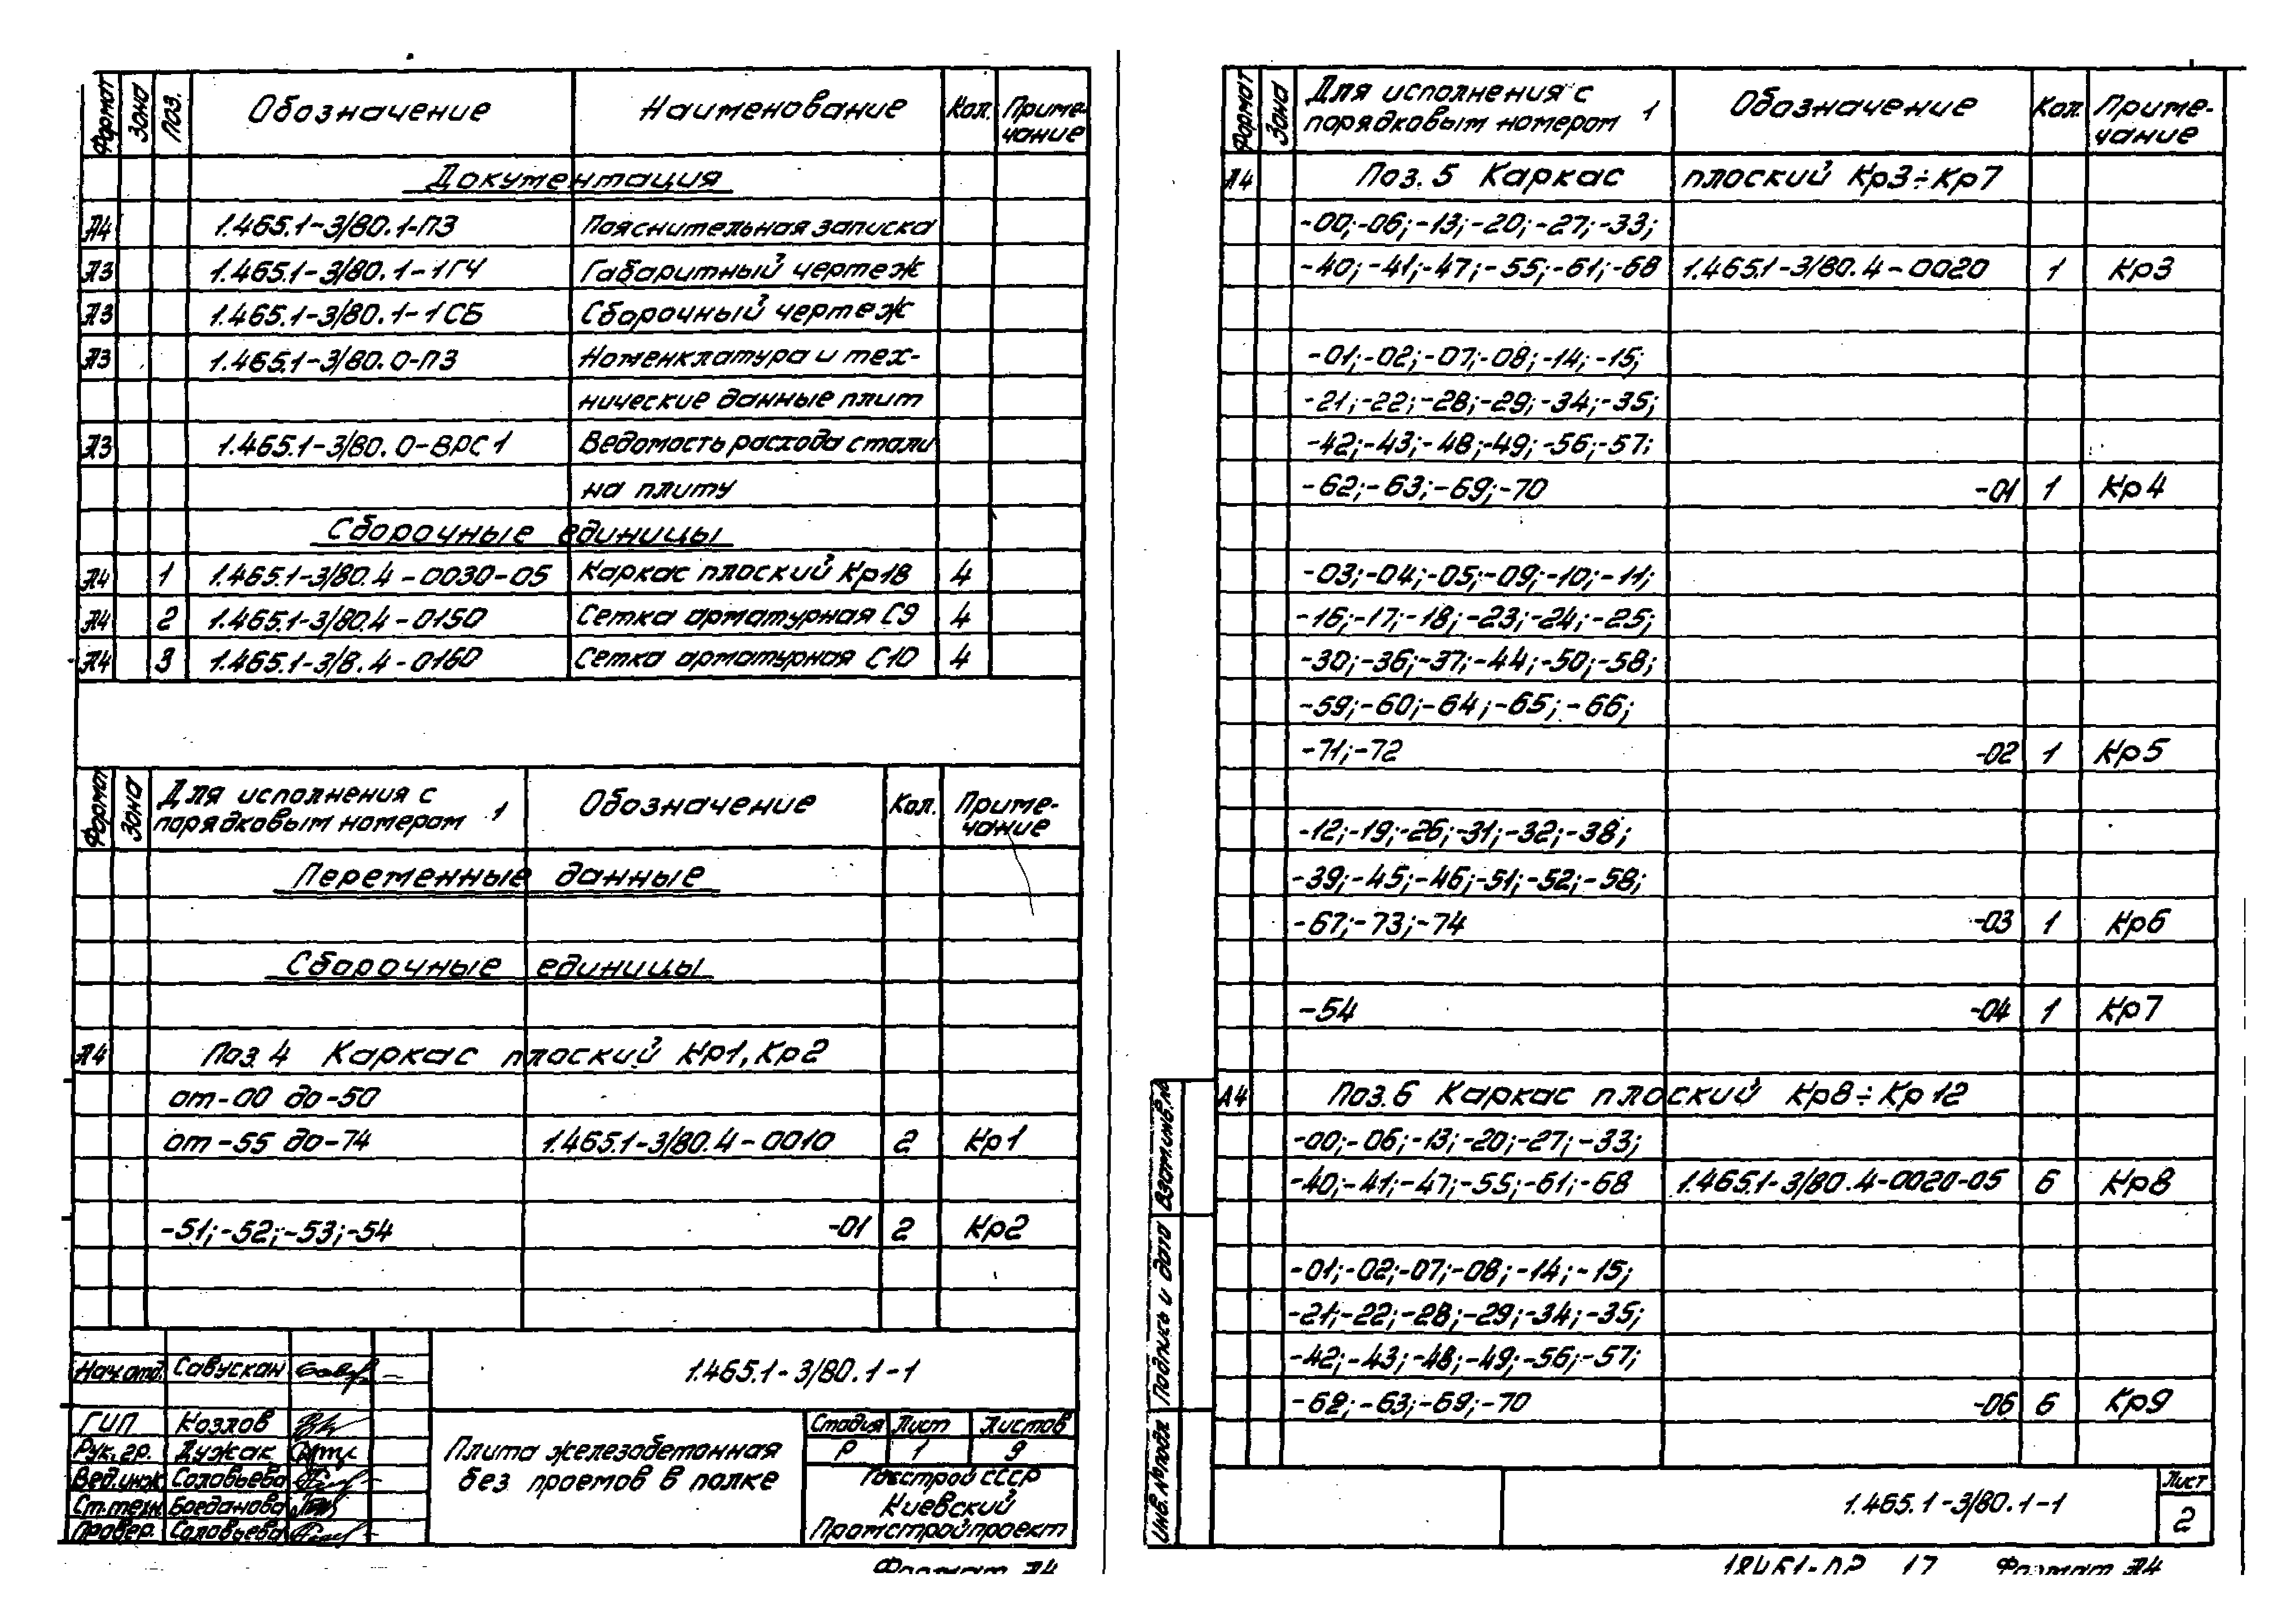 Формат Зона Поз. Обозначение Наименование Кол. Приме-
чание
Документация
А4 1.465.1-3/80.1-ПЗ Пояснительная записка
А3 1.465.1-3/80.1-1ГЧ Габаритный чертеж
А3 1.465.1-3/80.1-1СБ Сборочный чертеж
А3 1.465.1-3/80.0-ПЗ Номенклатура и тех-
нические данные плит
А3 1.465.1-3/80.0-ВРС1 Ведомость расхода стали
на плиту
Сборочные единицы
А4 1 1.465.1-3/80.4-0030-05 Каркас плоский Кр18 4
А4 2 1.465.1-3/80.4-0150 Сетка арматурная С9 4
А4 3 1.465.1-3/8.4-0160 Сетка арматурная С10 4
Формат Зона Для исполнения с
порядковым номером 1 Обозначение Кол. Приме-
чание
Переменные данные
Сборочные единицы
А4 Поз.4 Каркас плоский Кр1, Кр2
от-00 до-50
от-55 до-74 1.465.1-3/80.4-0010 2 Кр1
-51;-52;-53;-54 -01 2 Кр2
1.465.1-3/80.1-1
Нач.отд. Савускан
ГИП Козлов
Рук.гр. Дужак
Вед.инж. Соловьева
Ст.техн. Богданова
Провер. Соловьева
Плита железобетонная
без проемов в полке
Стадия Лист Листов
Р 1 9
Госстрой СССР
Киевский
Промстройпроект
Формат А4
Формат Зона Для исполнения с
порядковым номером 1 Обозначение Кол. Приме-
чание
А4 Поз.5 Каркас плоский Кр3÷Кр7
-00;-06;-13;-20;-27;-33;
-40;-41;-47;-55;-61;-68 1.465.1-3/80.4-0020 1 Кр3
-01;-02;-07;-08;-14;-15;
-21;-22;-28;-29;-34;-35;
-42;-43;-48;-49;-56;-57;
-62;-63;-69;-70 -01 1 Кр4
-03;-04;-05;-09;-10;-11;
-16;-17;-18;-23;-24;-25;
-30;-36;-37;-44;-50;-58;
-59;-60;-64;-65;-66;
-71;-72 -02 1 Кр5
-12;-19;-26;-31;-32;-38;
-39;-45;-46;-51;-52;-58;
-67;-73;-74 -03 1 Кр6
-54 -04 1 Кр7
А4 Поз.6 Каркас плоский Кр8÷Кр12
-00;-06;-13;-20;-27;-33;
-40;-41;-47;-55;-61;-68 1.465.1-3/80.4-0020-05 6 Кр8
-01;-02;-07;-08;-14;-15;
-21;-22;-28;-29;-34;-35;
-42;-43;-48;-49;-56;-57;
-62;-63;-69;-70 -06 6 Кр9
Инв.№подл Подпись и дата Взам.инв.№
1.465.1-3/80.1-1
Лист
2
17 Формат А4